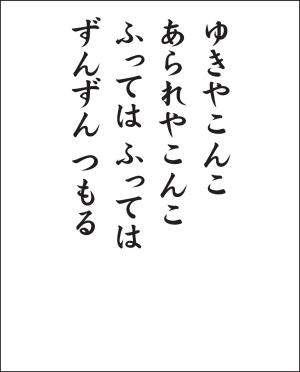 ゆきやこんこ
あられやこんこ
ふってはふっては
ずんずんつもる